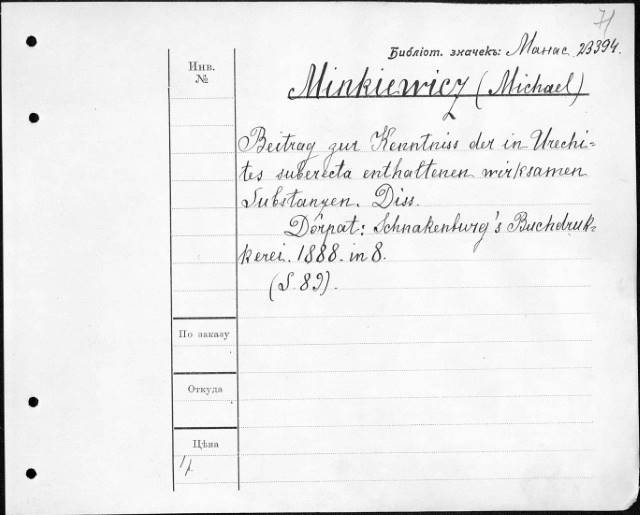 71
Библіот. значекъ: Манас. 23394.
Инв.
№
Minkiewicz (Michael)
Beitrag zur Kenntniss der in Urechi-
tes suberecta enthaltenen wirksamen
Substanzen. Diss.
Dörpat: Schnakenburg's Buchdruk-
kerei. 1888. in 8.
(S. 89).
По заказу
Откуда
Цѣна